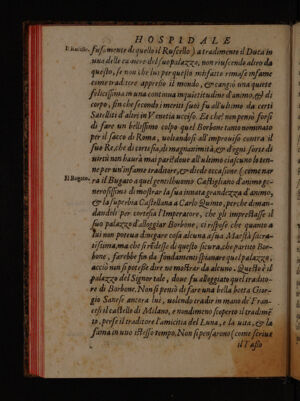 HOSPIDALE
Il Ruscello.
fusamente da quello il Ruscello) a tradimento il Duca in
una delle camere del suo palazzo, non riuscendo altro da
questo, se non che lui per questo misfatto rimase infame
come traditore appresso il mondo, & cangiò una quiete
felicissima in una continua inquietitudine d'animo, & di
corpo, fin che secondo i meriti suoi fu all'ultimo da certi
Satelliti d'altri in Venetia ucciso. Et che? non pensò forsi
di fare un bellissimo colpo quel Borbone tanto nominato
per il sacco di Roma, voltandosi all'improuiso contra il
suo Re, che di cortesia, di magnanimità, & d'ogni sorte di
virtù non haurà mai pari? doue all'ultimo ciascuno lo ten-
ne per un'infame traditore, & diede occasione (come nar
Il Bugato.
ra il Bugato a quel gentilhuomo Castigliano d'animo ge-
nerosissimo di mostrar la sua innata grandezza d'animo,
& la superbia Castellana a Carlo Quinto, perche diman-
dandoli per cortesia l'Imperatore, che gli imprestasse il
suo palazzo d'alloggiar Borbone, ei rispose che quanto a
lui non poteua dinegare cosa alcuna a sua Maestà sacra-
tissima, ma che si rendesse di questo sicura, che partito Bor-
bone, farebbe fin da fondamenti spianare quel palazzo,
acciò non si potesse dire nè mostrar da alcuno. Questo è il
palazzo del Signor tale, doue fu alloggiato quel tradito-
re di Borbone. Non si pensò di fare una bella botta Gior-
gio Sanese ancora lui, uolendo tradir in mano de' Fran-
cesi il castello di Milano, e nondimeno scoperto il tradimē
to, perse il traditore l'amicitia del Luna, e la uita, & la
fama in uno istesso tempo. Non si pensarono (come scriue
il Tasso